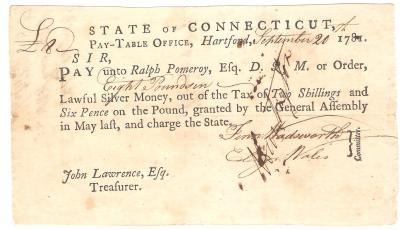 STATE OF CONNECTICUT,
£8
PAY-TABLE OFFICE, Hartford, September 20th 1781.
SIR,
PAY unto Ralph Pomeroy, Esq. D. Q. M. or Order,
Eight Pounds in
Lawful Silver Money, out of the Tax of Two Shillings and
Six Pence on the Pound, granted by the General Assembly
in May laſt, and charge the State.
Wadsworth
Wales
Committee.
John Lawrence, Eſq.
Treaſurer.